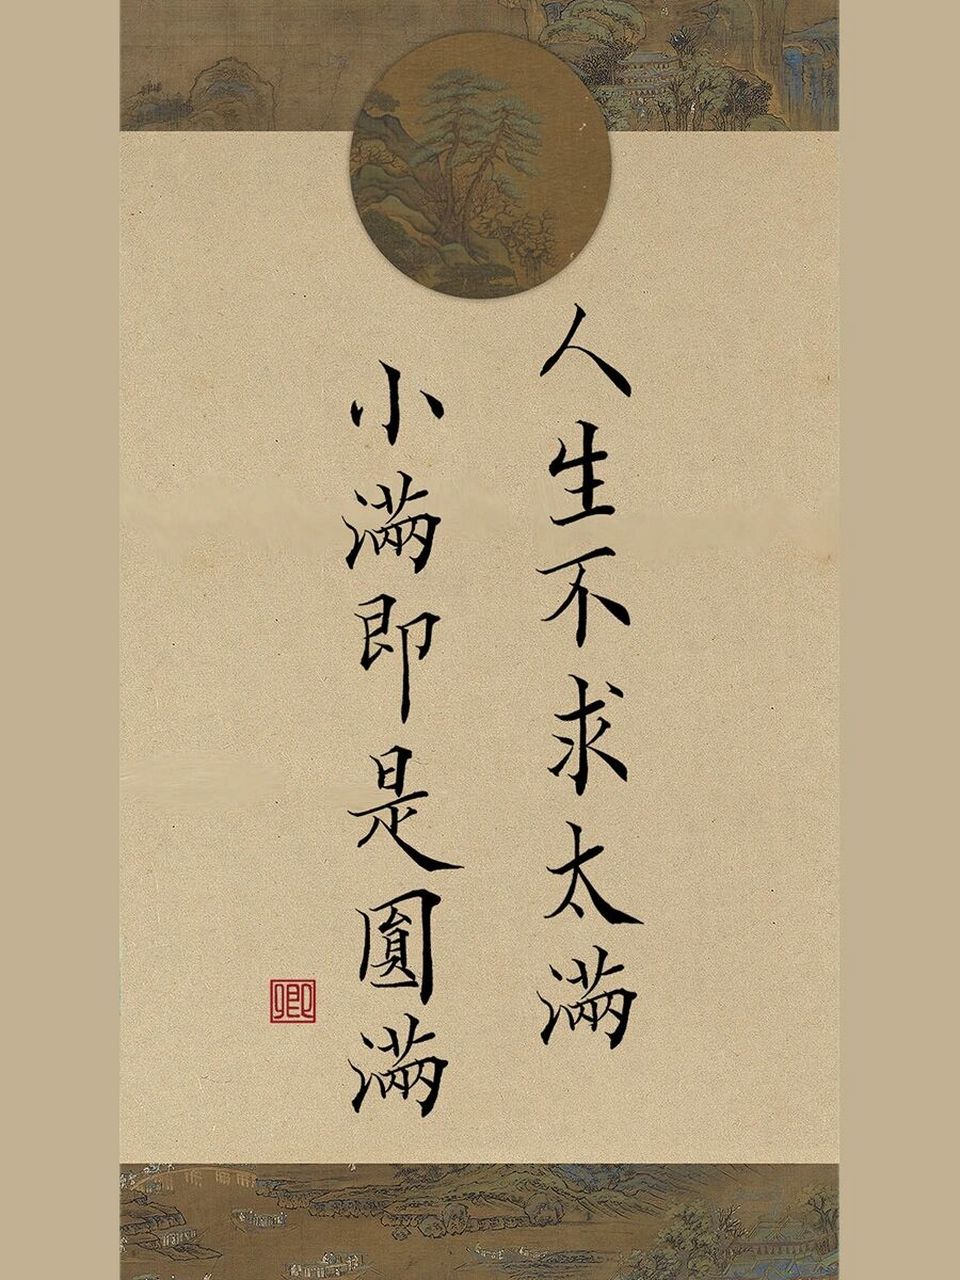 人生不求太滿
小滿即是圓滿
卿